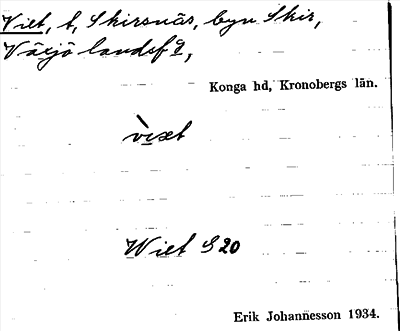 Viet, t, Skirsnäs, byn Skir,
Växjö landsfg,
Konga hd, Kronobergs län.
Wiet S 20
Erik Johannesson 1934.